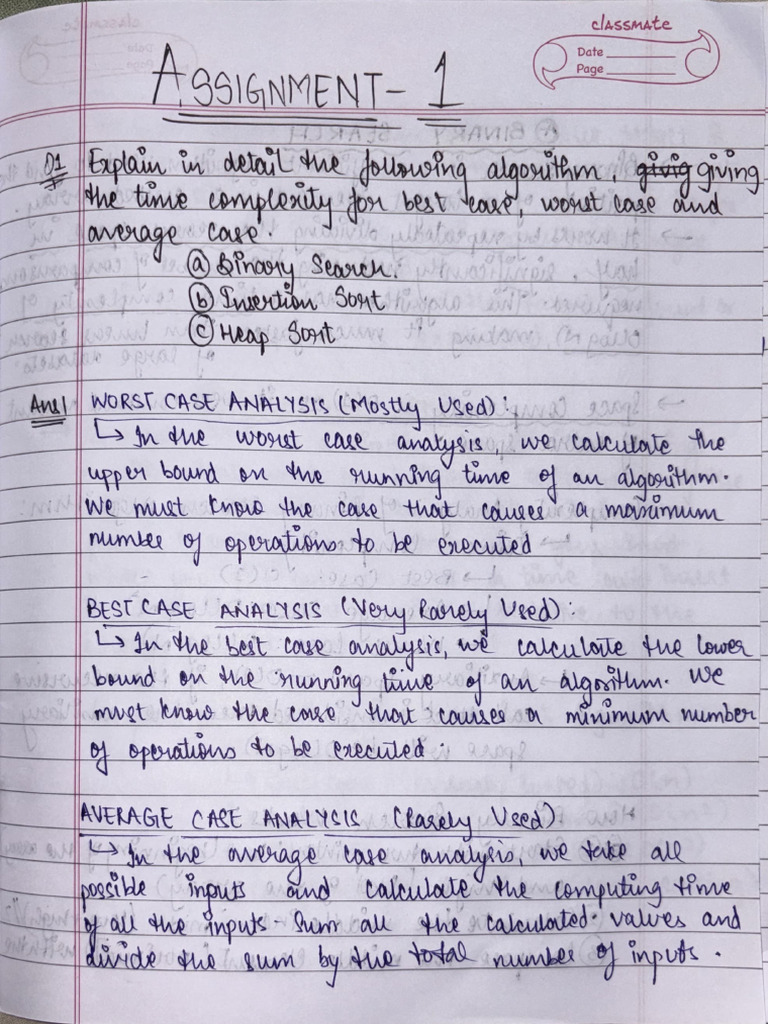 classmate
Date
Page
ASSIGNMENT - 1
Q1 Explain in detail the following algorithm. givig giving
the time complexity for best case, worst case and
average case.
(a) Binary Search.
(b) Insertion Sort
(c) Heap Sort
Ans1 WORST CASE ANALYSIS (Mostly Used):
↳ In the worst case analysis, we calculate the
upper bound on the running time of an algorithm.
We must know the case that causes a maximum
number of operations to be executed
BEST CASE ANALYSIS (Very Rarely Used):
↳ In the best case analysis, we calculate the lower
bound on the running time of an algorithm. We
must know the case that causes a minimum number
of operations to be executed.
AVERAGE CASE ANALYSIS (Rarely Used)
↳ In the average case analysis, we take all
possible inputs and calculate the computing time
of all the inputs. Sum all the calculated values and
divide the sum by the total number of inputs.